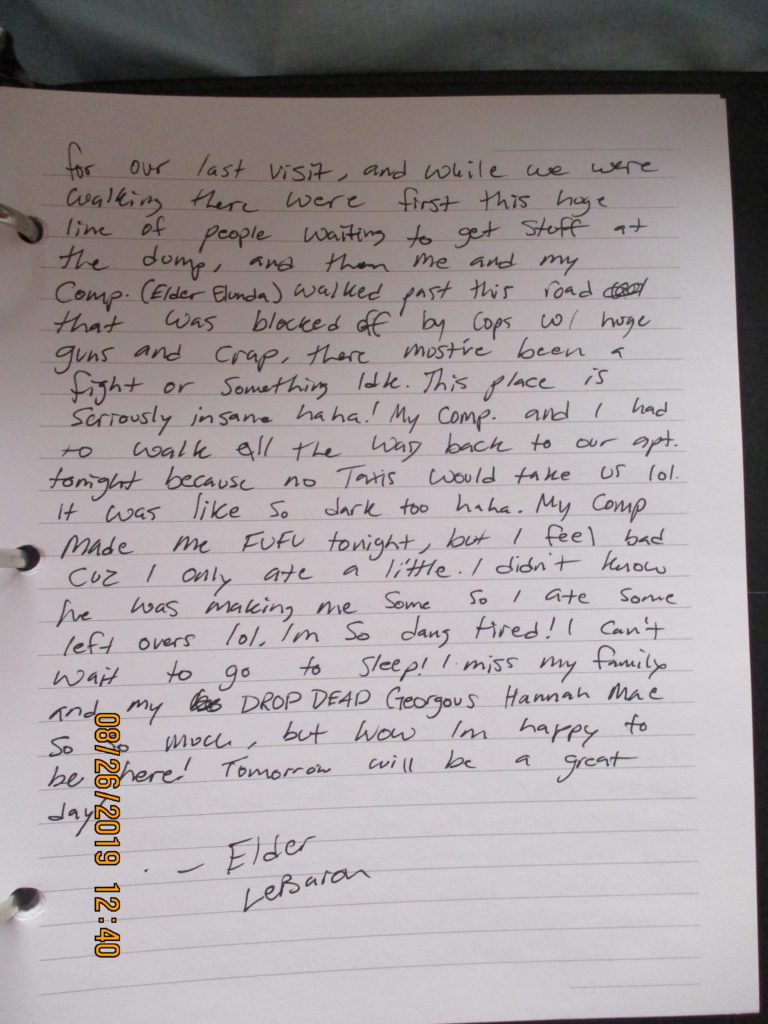 for our last visit, and while we were
walking there were first this huge
line of people waiting to get stuff at
the dump, and then me and my
Comp. (Elder Elunda) walked past this road
that was blocked off by cops w/ huge
guns and crap, there must've been a
fight or something Idk. This place is
seriously insane haha! My Comp. and I had
to walk all the way back to our apt.
tonight because no Taxis would take us lol.
It was like so dark too haha. My Comp
Made me FUFU tonight, but I feel bad
cuz I only ate a little. I didn't know
he was making me some so I ate some
left overs lol. I'm so dang tired! I can't
wait to go to sleep! I miss my family
and my DROP DEAD Georgous Hannah Mae
So so much, but wow I'm happy to
be here! Tomorrow will be a great
day!
- Elder
LeBaron
08/26/2019 12:40